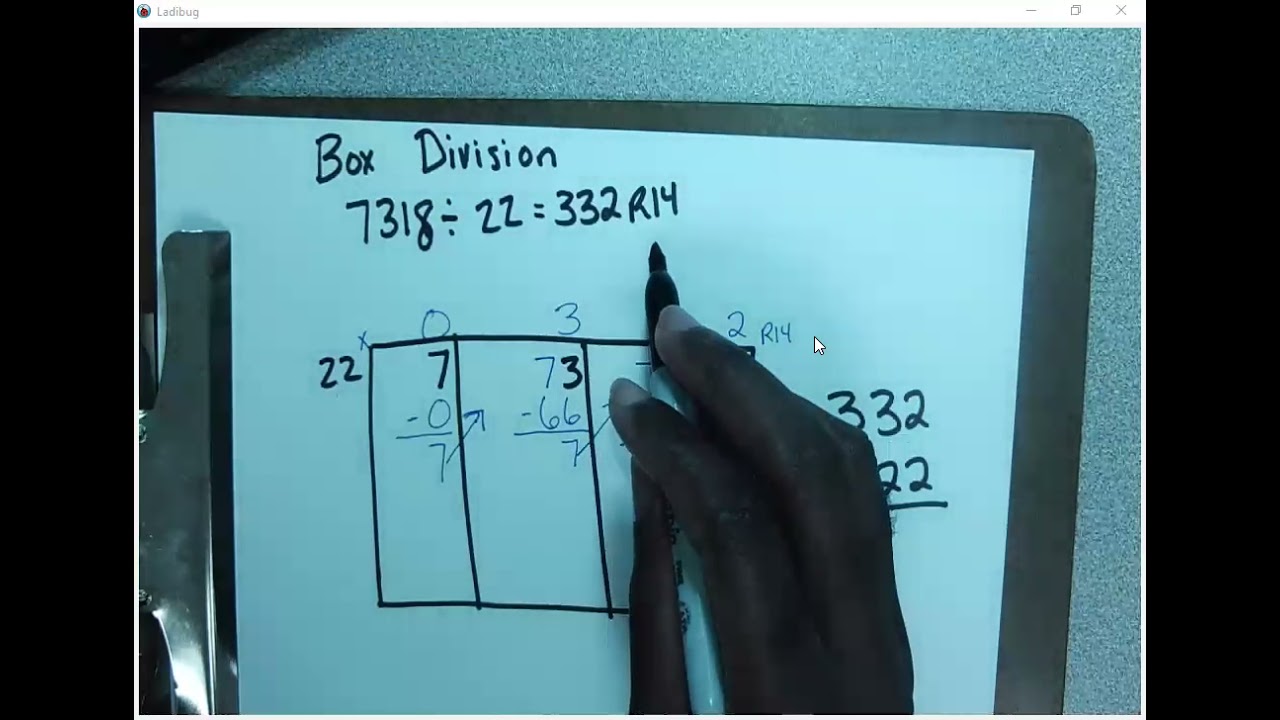 Ladibug
Box Division
7318 ÷ 22 = 332 R14
x 0 3 2 R14
22 7 73
-0 -66
7 7
332
22